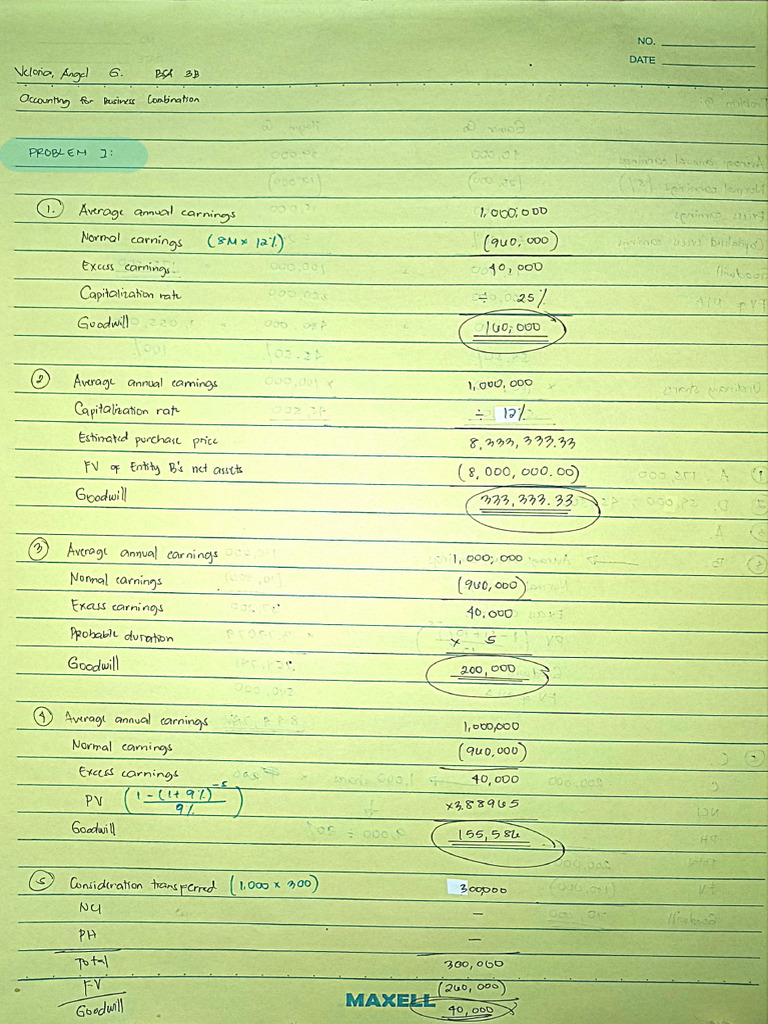 NO.
DATE
Veloria, Angel G. BSA 3B
Accounting for Business Combination
PROBLEM I:
1. Average annual earnings 1,000,000
Normal earnings (8M x 12%) (960,000)
Excess earnings 40,000
Capitalization rate ÷ 25%
Goodwill 160,000
2 Average annual earnings 1,000,000
Capitalization rate ÷ 12%
Estimated purchase price 8,333,333.33
FV of Entity B's net assets (8,000,000.00)
Goodwill 333,333.33
3 Average annual earnings 1,000,000
Normal earnings (960,000)
Excess earnings 40,000
Probable duration x 5
Goodwill 200,000
4 Average annual earnings 1,000,000
Normal earnings (960,000)
Excess earnings 40,000
PV (1-(1+9%)^-5 / 9%) x3.88965
Goodwill 155,586
5 Consideration transferred (1,000 x 300) 300,000
NCI —
PH —
Total 300,000
FV (260,000)
Goodwill 40,000
MAXELL